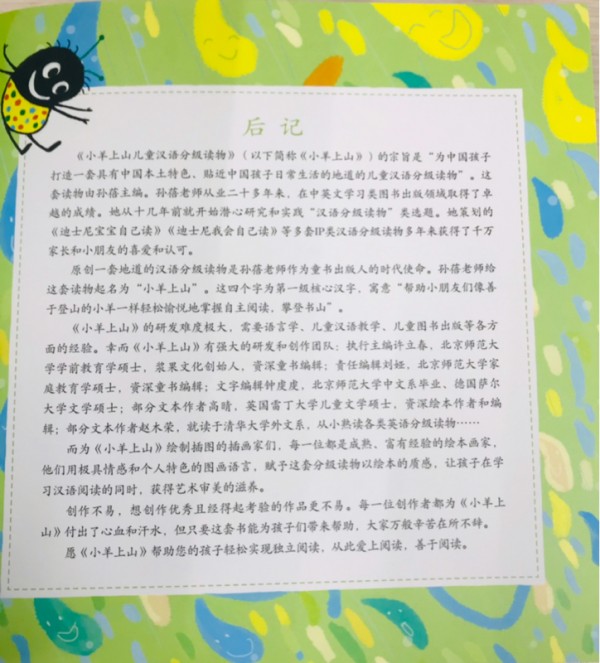 后记
《小羊上山儿童汉语分级读物》（以下简称《小羊上山》）的宗旨是“为中国孩子
打造一套具有中国本土特色，贴近中国孩子日常生活的地道的儿童汉语分级读物”。这
套读物由孙蓓主编。孙蓓老师从业二十多年来，在中英文学习类图书出版领域取得了卓
越的成绩。她从十几年前就开始潜心研究和实践“汉语分级读物”类选题。她策划的
《迪士尼宝宝自己读》《迪士尼我会自己读》等多套IP类汉语分级读物多年来获得了千万
家长和小朋友的喜爱和认可。
原创一套地道的汉语分级读物是孙蓓老师作为童书出版人的时代使命。孙蓓老师给
这套读物起名为“小羊上山”。这四个字为第一级核心汉字，寓意“帮助小朋友们像善
于登山的小羊一样轻松愉悦地掌握自主阅读，攀登书山”。
《小羊上山》的研发难度极大，需要语言学、儿童汉语教学、儿童图书出版等各方
面的经验。幸而《小羊上山》有强大的研发和创作团队：执行主编许立春，北京师范大
学学前教育学硕士，浆果文化创始人，资深童书编辑；责任编辑刘娅，北京师范大学家
庭教育学硕士，资深童书编辑；文字编辑钟虔虔，北京师范大学中文系毕业、德国萨尔
大学文学硕士；部分文本作者高晴，英国雷丁大学儿童文学硕士，资深绘本作者和编
辑；部分文本作者赵木荣，就读于清华大学外文系，从小熟读各类英语分级读物……
而为《小羊上山》绘制插图的插画家们，每一位都是成熟、富有经验的绘本画家，
他们用极具情感和个人特色的图画语言，赋予这套分级读物以绘本的质感，让孩子在学
习汉语阅读的同时，获得艺术审美的滋养。
创作不易，想创作优秀且经得起考验的作品更不易。每一位创作者都为《小羊上
山》付出了心血和汗水，但只要这套书能为孩子们带来帮助，大家万般辛苦在所不辞。
愿《小羊上山》帮助您的孩子轻松实现独立阅读，从此爱上阅读，善于阅读。